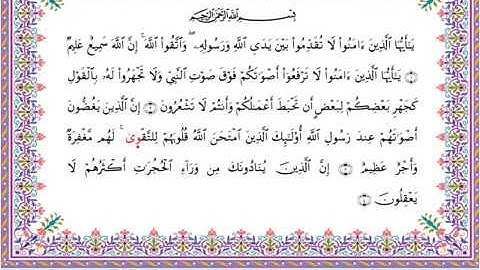 بِسْمِ اللَّهِ الرَّحْمَٰنِ الرَّحِيمِ
يَٰٓأَيُّهَا ٱلَّذِينَ ءَامَنُوا۟ لَا تُقَدِّمُوا۟ بَيْنَ يَدَىِ ٱللَّهِ وَرَسُولِهِۦ ۖ وَٱتَّقُوا۟ ٱللَّهَ ۚ إِنَّ ٱللَّهَ سَمِيعٌ عَلِيمٌ
۝١ يَٰٓأَيُّهَا ٱلَّذِينَ ءَامَنُوا۟ لَا تَرْفَعُوٓا۟ أَصْوَٰتَكُمْ فَوْقَ صَوْتِ ٱلنَّبِىِّ وَلَا تَجْهَرُوا۟ لَهُۥ بِٱلْقَوْلِ
كَجَهْرِ بَعْضِكُمْ لِبَعْضٍ أَن تَحْبَطَ أَعْمَٰلُكُمْ وَأَنتُمْ لَا تَشْعُرُونَ ۝٢ إِنَّ ٱلَّذِينَ يَغُضُّونَ
أَصْوَٰتَهُمْ عِندَ رَسُولِ ٱللَّهِ أُو۟لَٰٓئِكَ ٱلَّذِينَ ٱمْتَحَنَ ٱللَّهُ قُلُوبَهُمْ لِلتَّقْوَىٰ ۚ لَهُم مَّغْفِرَةٌ
وَأَجْرٌ عَظِيمٌ ۝٣ إِنَّ ٱلَّذِينَ يُنَادُونَكَ مِن وَرَآءِ ٱلْحُجُرَٰتِ أَكْثَرُهُمْ لَا
يَعْقِلُونَ ۝٤